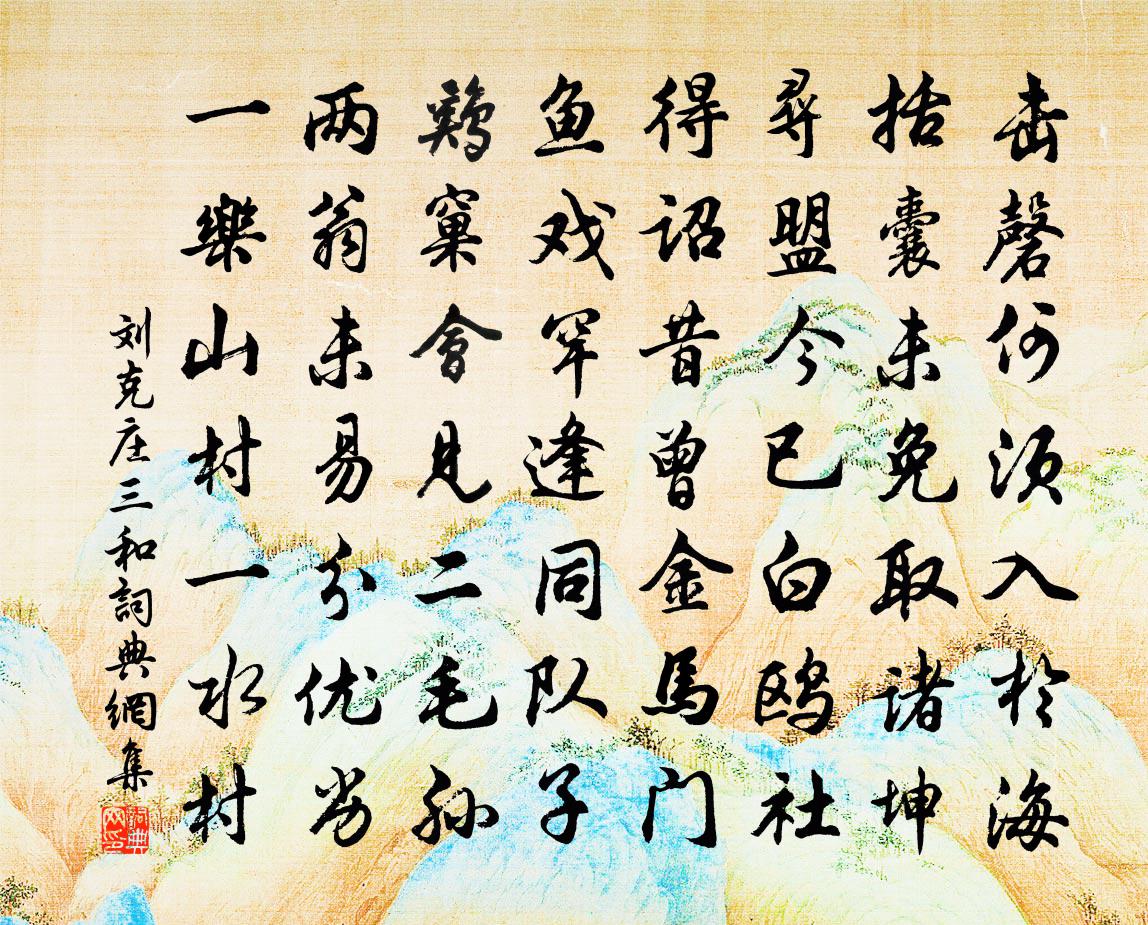 击磬何须入於海
括囊未免取诸坤
尋盟今已白鸥社
得诏昔曾金馬门
鱼戏罕逢同队子
鷄窠會见二毛孙
两翁未易分优劣
一樂山村一水村
刘克庄三和詞典網集